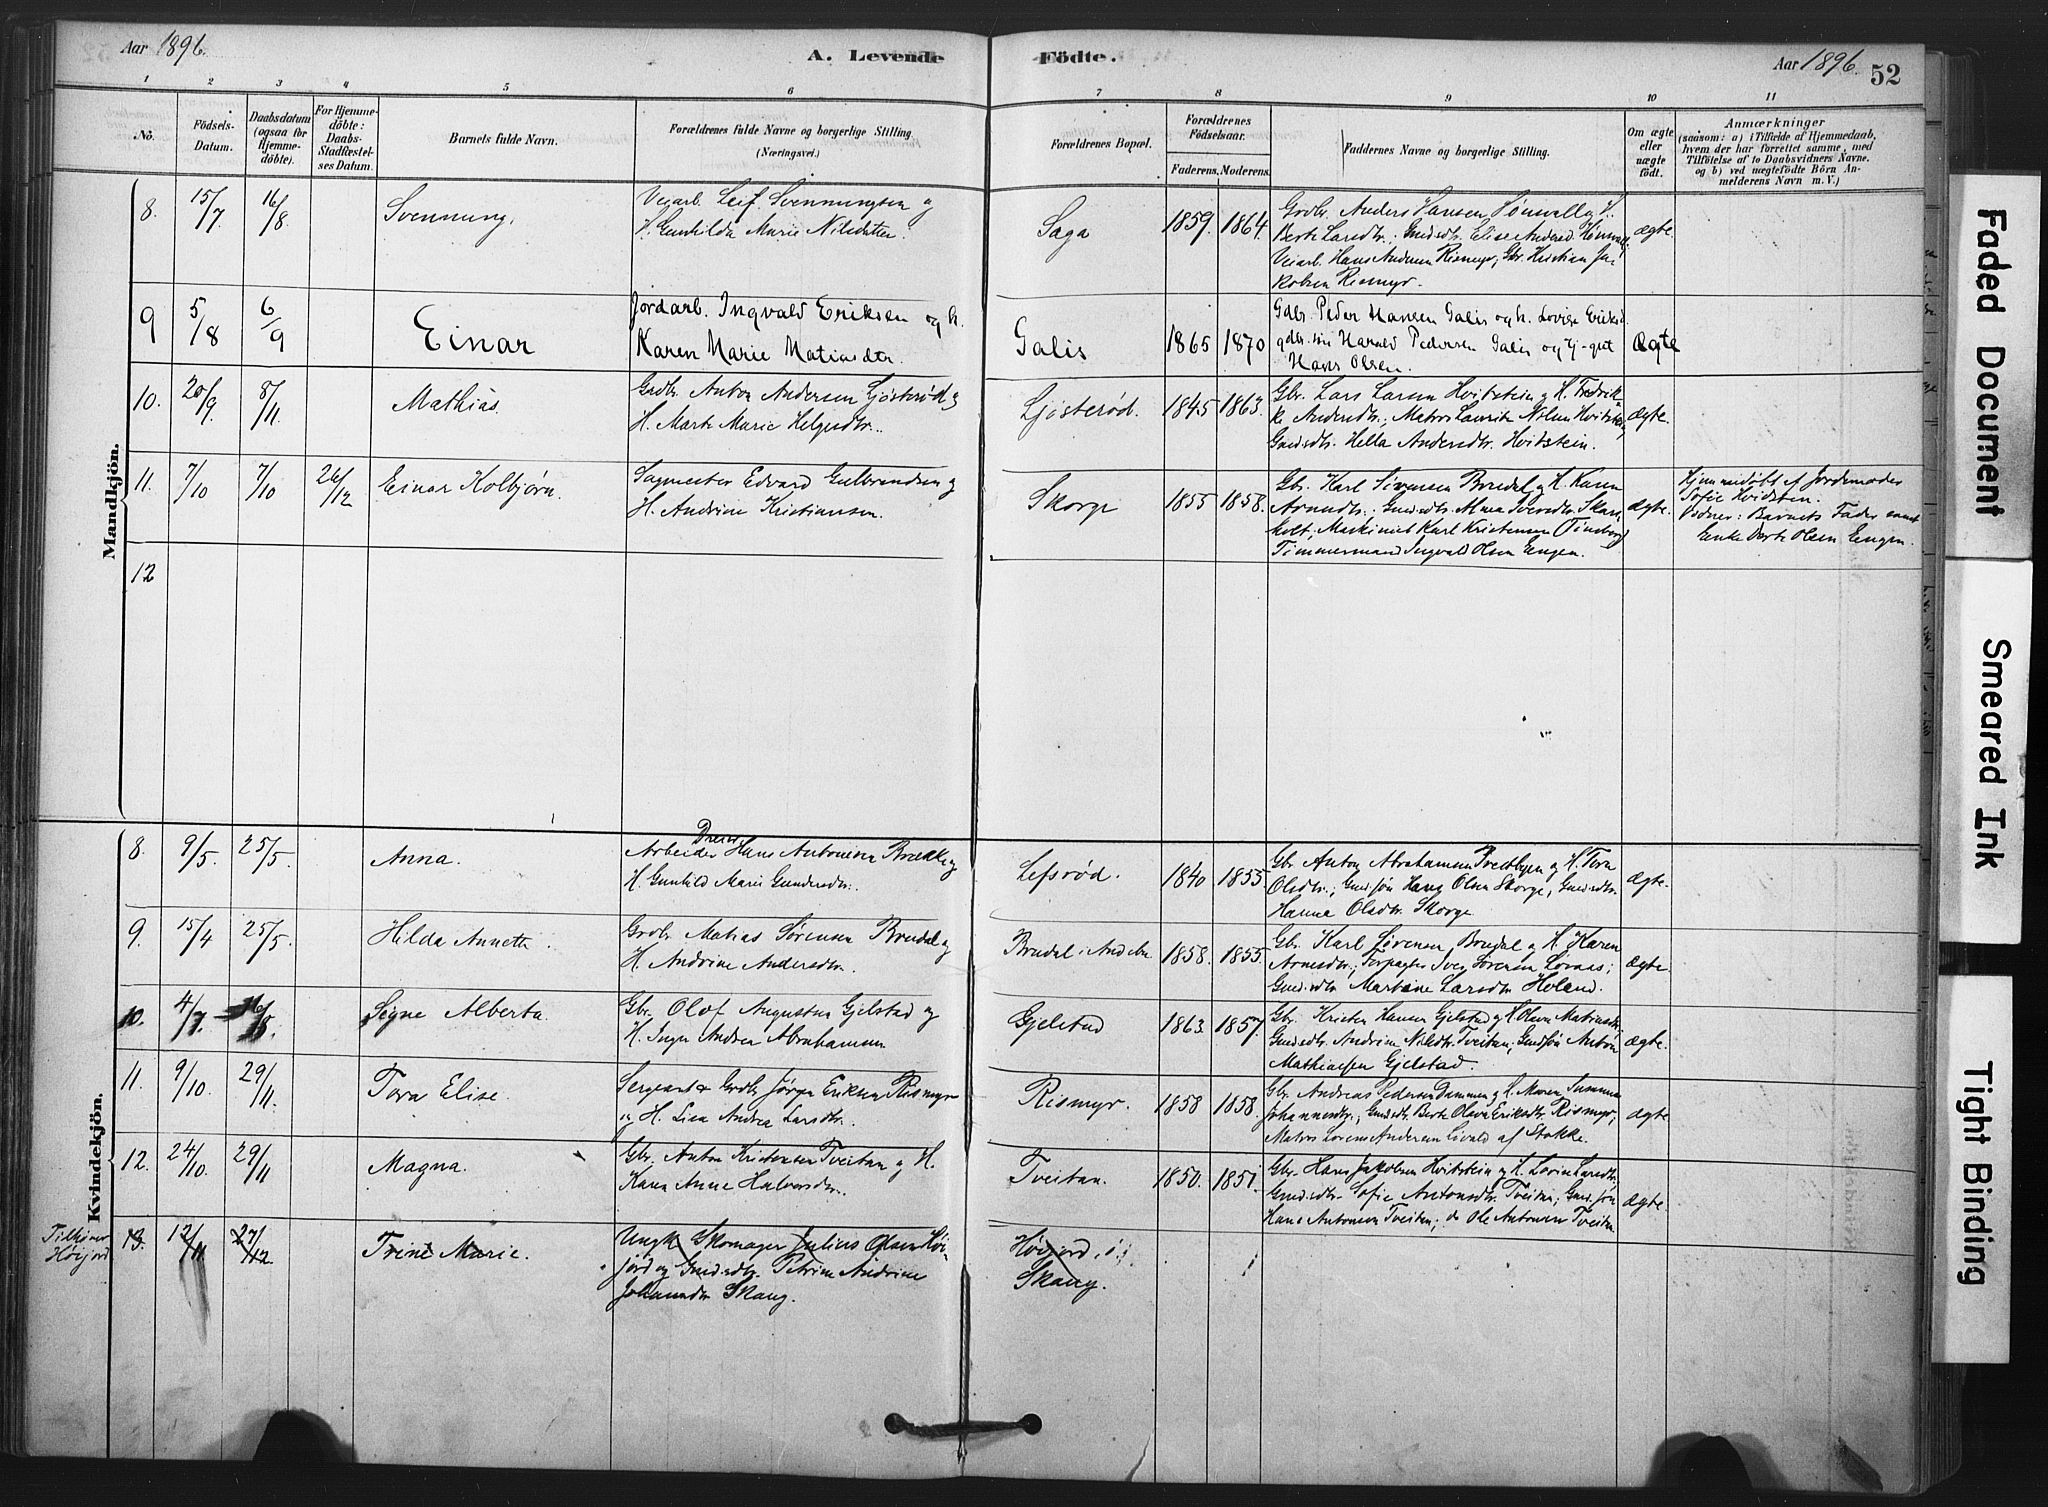 Aar 1896.
A. Levende Födte.
Aar 1896. 52
1 2 3 4 5 6 7 8 9 10 11
No.
Födsels-
Datum.
Daabsdatum
(ogsaa for
Hjemme-
döbte).
For Hjemme-
döbte:
Daabs-
Stadfæstel-
ses Datum.
Barnets fulde Navn.
Forældrenes fulde Navne og borgerlige Stilling.
(Næringsvei.)
Forældrenes Bopæl.
Forældrenes
Födselsaar.
Faderens. Moderens.
Faddernes Navne og borgerlige Stilling.
Om ægte
eller
uægte
födt.
Anmærkninger
(saasom: a) i Tilfælde af Hjemmedaab,
hvem der har forrettet samme, med
Tilföielse af to Daabsvidners Navne.
og b) ved uægtefödte Börn An-
melderens Navn m. V.)
Mandkjön.
8. 15/7 16/8 Svennung.
Veiarb. Leif Svennungsen og
H. Gunhilda Marie Nilsdatter.
Saga 1859. 1864.
Grdbr. Anders Hansen Hønsvall og H.
Berte Larsdtr.; Gmdsdtr. Elise Andersd. Hønsvall;
Veiarb. Hans Andersen Rismyr; Gbr. Kristian Ja-
kobsen Rismyr.
ægte.
9 5/8 6/9 Einar
Jordarb. Ingvald Eriksen og h.
Karen Marie Matiasdtr.
Galis 1865 1870
Gdbr. Peder Hansen Galis og h. Lovise Eriksd.
gdbr. søn Harald Pedersen Galis og tj-gut
Hans Olsen.
ægte
10. 20/9 8/11 Mathias.
Grdbr. Anton Andersen Ljøsterød og
H. Marte Marie Helgesdtr.
Ljøsterød. 1845 1863.
Gbr. Lars Larsen Hvitstein og H. Fredrik-
ke Andersdtr.; Matros Laurits Nilsen Hvitstein,
Gmdsdtr. Hella Andersdtr. Hvitstein.
ægte.
11. 7/10 7/10 26/12 Einar Kolbjørn.
Sagmester Edvard Gulbrandsen og
H. Andrine Kristiansen.
Skorge 1855 1858.
Gbr. Karl Sørensen Bredal og H. Karen
Arnesdtr.; Gmdsdtr. Alma Iversdtr. Skar-
holt; Maskinist Karl Kristensen Tønsberg
Timmermand Ingvald Olsen Engen.
ægte.
Hjemmedøbt af Jordemoder
Sofie Hvidsten.
Vidner: Barnets Fader samt
Enke Dorte Olsen Engen.
12
Kvindekjön.
8. 9/5. 25/5. Anna.
Dreier
Arbeider Hans Antonisen Brække og
H. Gunhild Marie Gundersdtr.
Lefsrød. 1840 1855.
Gbr. Anton Abrahamsen Prestbyen og H. Tora
Olsdtr.; Gmdsøn Hans Olsen Skorge, Gmdsdtr.
Hanna Olsdtr. Skorge
ægte.
9. 15/4 25/5. Hilda Annette.
Grdbr. Matias Sørensen Bredal og
H. Andrine Andersdtr.
Bredal i Andebu 1858. 1855.
Gbr. Karl Sørensen Bredal og H. Karen
Arnesdtr.; Forpagter Iver Sørensen Løvaas;
Gmdsdtr. Martine Larsdtr. Holand.
ægte.
10. 4/7. 16/8. Signe Alberta.
Gbr. Olof Augustus Gjelstad og
H. Inga Andrea Abrahamsen
Gjelstad 1863. 1857.
Gbr. Kristen Hansen Gjelstad og H. Olava Matiasdtr.
Gmdsdtr. Andrine Nilsdtr. Tveitan; Gmdsøn Anton
Mathiassen Gjelstad.
ægte.
11. 9/10. 29/11. Tora Elise.
Sergeant & Grdb. Jørgen Eriksen Rismyr
og H. Lisa Andrea Larsdtr.
Rismyr. 1858 1858.
Gbr. Andreas Pedersen Dammen og H. Maren
Johannesdtr.; Gmdsdtr. Berte Olava Eriksdtr. Rismyr;
Matros Lorens Andersen Livald af Stokke.
ægte.
12. 24/10. 29/11 Magna.
Gbr. Anton Kristensen Tveitan og H.
Karen Anne Halvorsdtr.
Tveitan. 1850. 1851.
Gbr. Hans Jakobsen Hvitstein og H. Lovise Larsdtr.
Gmdsdtr. Sofie Antonsdtr. Tveitan; Gmdsøn
Hans Antonsen Tveitan; do Ole Antonsen Tveitan
ægte.
Tilhører
Høijord
13. 12/11 27/12. Trine Marie.
Ungk. Skomager Julius Olsen Høi-
jord og Gmdsdtr. Petrine Andrine
Johannsdtr. Skaug.
Høijord,
Skaug.
Faded Document
Smeared Ink
Tight Binding